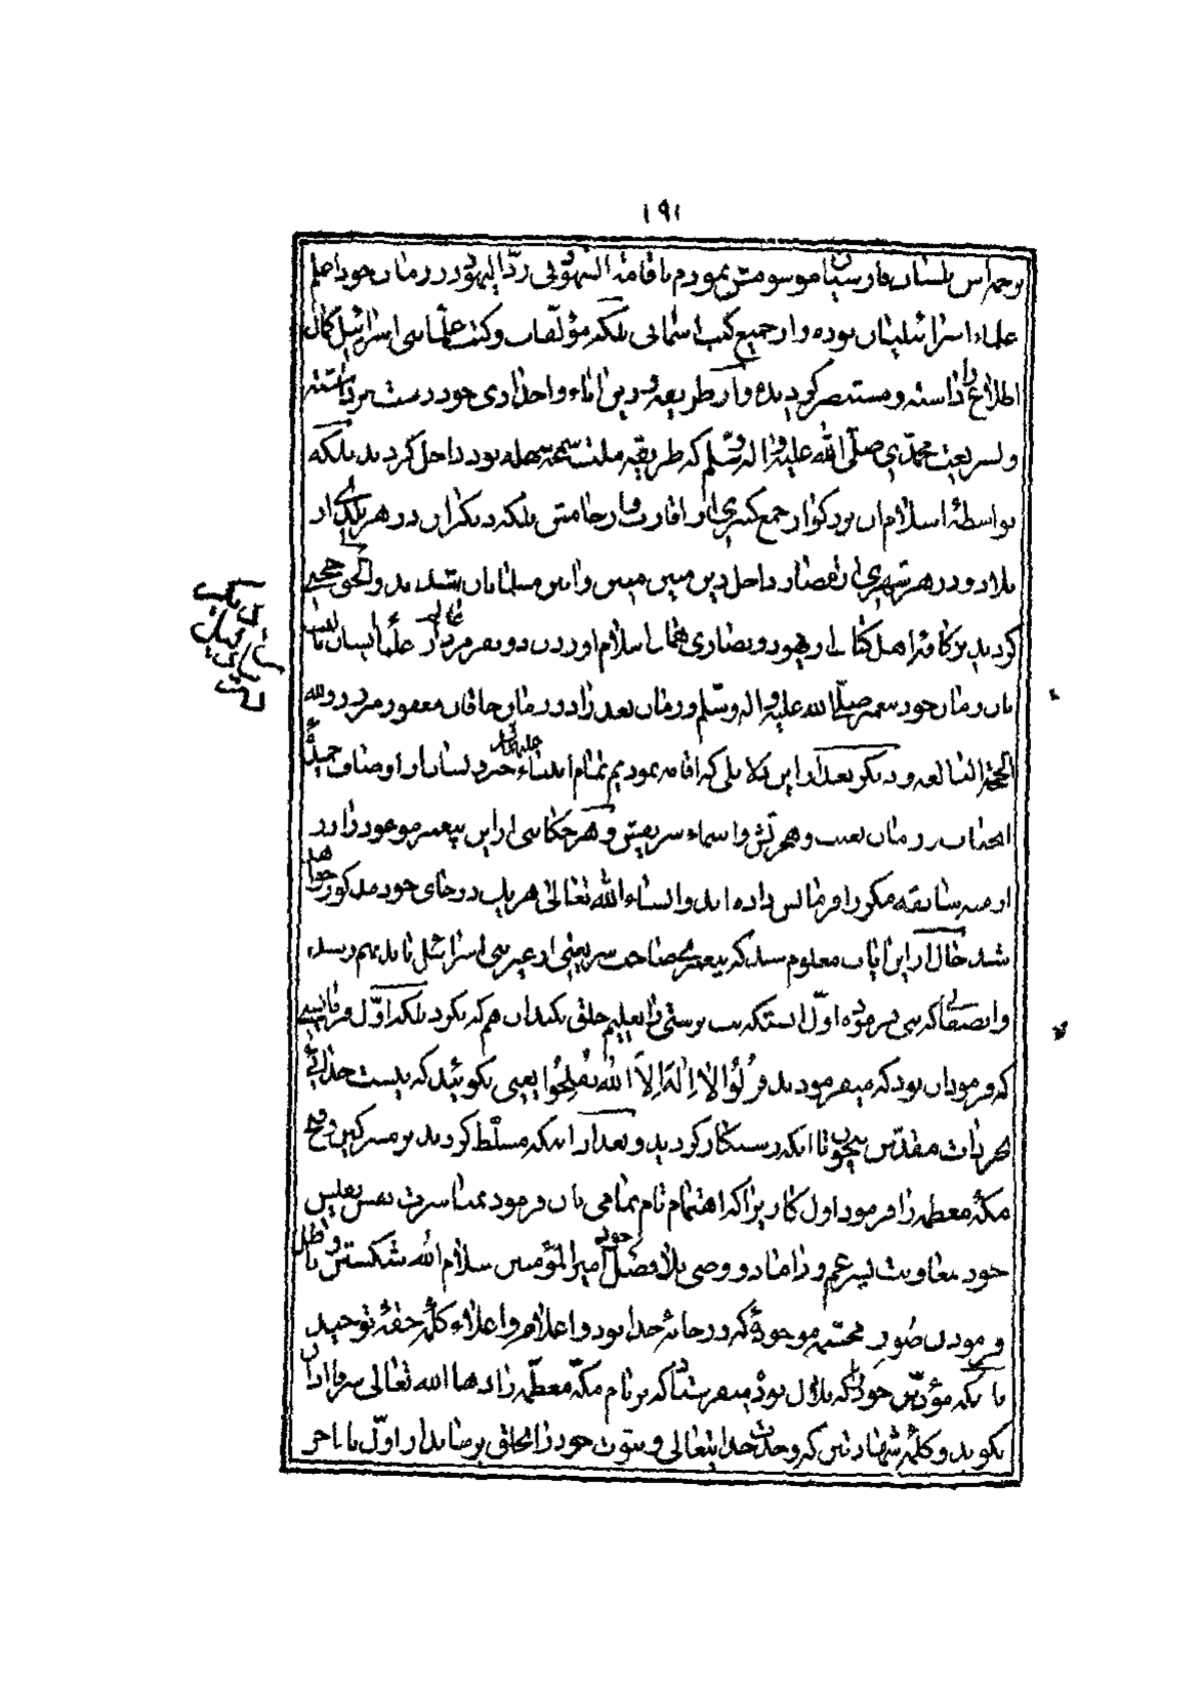 ١٩١
ترجمه اش بلسان فارسیان موسومش نمودم باقامة الشهود فی ردّ الیهود در زمان خود اعلم
علماء اسرائیلیان بوده و از جمیع کتب آسمانی بلکه مؤلّفات و کتب علمای بنی اسرائیل کمال
اطلاع را داشته و مستبصر گردیده و از طریقه و دین آباء و اجدادی خود دست برداشته
و بشریعت محمّدی صلّی الله علیه و آله و سلّم که طریقه و ملت سمحه سهله بود داخل گردید بلکه
بواسطهٔ اسلام آن بزرگوار جمع کثیری از اقارب و ارحامش بلکه دیگران در هر بلدی از
بلاد و در هر شهری از داخل دین مبین و آیین مسلمانان شدند و الحق حجة
گردید بر کافهٔ اهل کتاب از یهود و نصاری اسلام آوردن دو نفر مرد از علمای ایشان
زمان خود پیغمبر صلّی الله علیه و آله و سلّم و زمان بعد را در زمان خاقان مغفور مبرور ولله
الحجة البالغه و دیگر بعد از این دلایلی که اقامه نمودیم تمام انبیاء خبر دادند از اوصاف جمیله
آنجناب و زمان بعثت و هجرتش و اسماء شریفش و هر حکایتی از این پیغمبر موعود را در
ازمنه سابقه مکرر فرمایش داده اند و انشاء الله تعالی هر یک در جای خود مذکور خواهد
شد حال از این آیات معلوم شد که پیغمبری صاحب شریعتی از غیر بنی اسرائیل باید بهم رسد
که می فرموده اوّل اینستکه بت پرستی را تعلیم خلق نکند آن هم که نکرد بلکه اوّل فرمایشی
که فرمود آن بود که میفرمودند قُولُوا لا اِلٰهَ اِلاّ الله تُفْلِحُوا یعنی بگوئید که نیست خدائی
بجز ذات مقدّس بیچون تا آنکه رستگار گردید و بعد از آنکه مسلّط گردید بر مشرکین و فتح
مکّهٔ معظمه را فرمود اول کاریرا که اهتمام تام تمامی بآن فرمود بمباشرت نفس نفیس
خود بمعاونت پسر عم و داماد و وصی بلافصل خود امیر المؤمنین سلام الله شکستن و باطل
نمودن صُور مجسّمه موجودهٔ که در خانهٔ خدا بود و اعلام و اعلاء کلمهٔ حقهٔ توحید
با آنکه مؤذّن خود را که بلال بود میفرستاد که بر بام مکّه معظّمه زادها الله تعالی شرفا اذان
بگوید و کلمهٔ شهادتین که وحدت خدایتعالی و نبوت خود را بخلق برساند از اوّل تا آخر